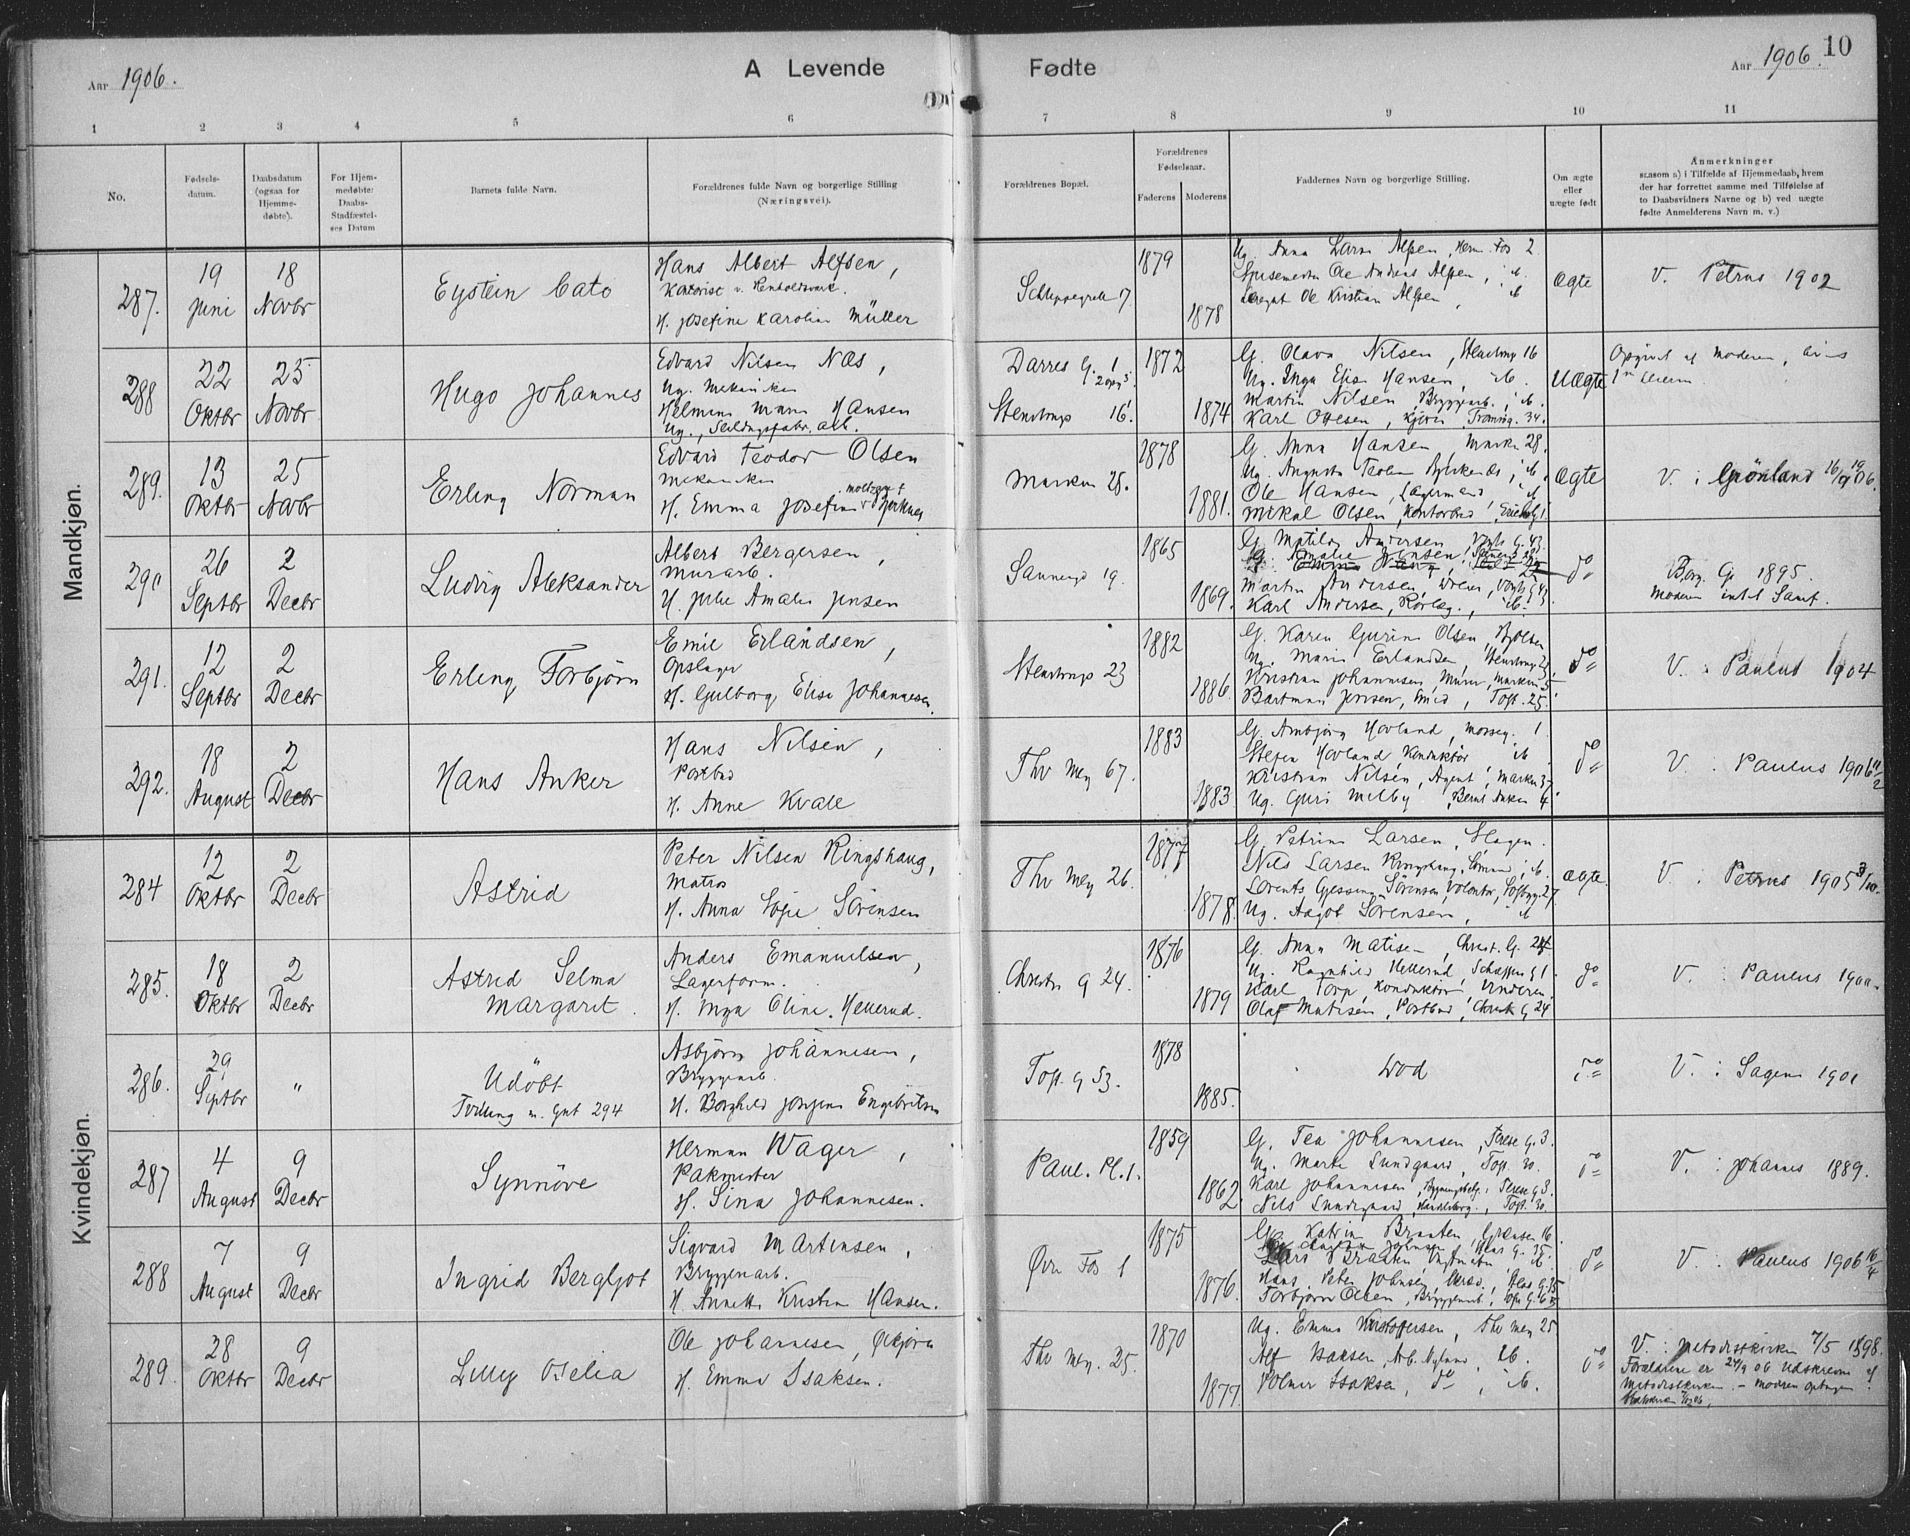 Aar 1906.
A Levende
Fødte
Aar 1906.
10
1 2 3 4 5 6 7 8 9 10 11
No.
Fødsels-
datum.
Daabsdatum
(ogsaa for
Hjemme-
døbte).
For Hjem-
medøbte:
Daabs-
Stadfæstel-
ses Datum
Barnets fulde Navn.
Forældrenes fulde Navn og borgerlige Stilling
(Næringsvei).
Forældrenes Bopæl.
Forældrenes
Fødselsaar.
Faderens Moderens
Faddernes Navn og borgerlig Stilling.
Om ægte
eller
uægte født
Anmerkninger
saasom a) i Tilfælde af Hjemmedaab, hvem
der har forrettet samme med Tilføielse af
to Daabsvidners Navne og b) ved uægte
fødte Anmelderens Navn m. v.)
Mandkjøn.
287.
19
Juni
18
Novbr
Eystein Cato
Hans Albert Alfsen,
Kontorist v.
H. Josefine Karoline Müller
Schleppegrels 17.
1879
1878
Ug. Anna Alfsen, Fos 2
Ole Andreas Alfsen,
Ole Kristian Alfsen,
Ægte
V. Petrus 1902
288
22
Oktbr
25
Novbr
Hugo Johannes
Edvard Nilsen Næs,
Ug. Mekaniker
Helmine Marie Hansen
Ug.,
Darres G. 1
Stenstrups 16.
1872
1874
G. Olava Nilsen, Stenstrup 16
Ug. Inga Elise Hansen, ib.
Martin Nilsen, Bryggearb., ib.
Karl Ottesen, Kjører, Troming. 34.
Uægte
Opgivet af Moderen,
289.
13
Oktbr
25
Novbr
Erling Norman
Edvard Teodor Olsen
Mekaniker
H. Emma Josefine
Marken 28.
1878
1881.
G. Anna Hansen, Marken 28.
Ug. Augusta
Ole Hansen, Lagermand, ib
Mikal Olsen, Kontorbud,
Ægte
V. : Grønland 16/9 1906.
290
26
Septbr
2
Decbr
Ludvig Aleksander
Albert Bergersen,
Murarb.
H. Julie Amalie Jensen
Sannergd 19.
1865
1869.
G. Matilde Andersen, Vogts G. 43
G. Amalie Jensen,
Martin Andersen,
Karl Andersen, Rørlæg., ib.
do
Borg. G. 1895.
Moderen intet Samf.
291.
12
Septbr
2
Decbr
Erling Torbjørn
Emil Erlandsen,
Opslager
H. Gulborg Elise Johannesen.
Stenstrups 23
1882
1886.
G. Karen Gurine Olsen,
Ug. Marie Erlandsen, Stenstrup 23
Kristian Johannesen, Murer, Marken 5.
Bartman Jensen, Smed, Toft. 25.
do
V. : Paulus 1904
292.
18
August
2
Decbr
Hans Anker
Hans Nilsen,
Postbud
H. Anne Kvale
Thv Mey 67.
1883
1883
G. Ambjørg Hovland, Mosseg. 1.
Steffen Hovland, Konduktør ib.
Kristian Nilsen, Agent, Marken 37
Ug. Guri Melby, Bernt Anken 4.
do
V. : Paulus 1906 11/2
Kvindekjøn.
284
12
Oktbr
2
Decbr
Astrid
Peter Nilsen Ringshaug,
Matros
H. Anna Sofie Sørensen
Thv Mey 26.
1877
1878.
G. Petrine Larsen, Slagen.
Nils Larsen Ringshaug, Sømand, ib.
Lorents Gjessing Sørensen, Volontør,
Ug. Aagot Sørensen, ib
Ægte.
V. : Petrus 1905 3/10.
285.
18
Oktbr
2
Decbr
Astrid Selma
Margarit.
Anders Emanuelsen,
Lagerform.
H. Inga Oline Hellerud.
Christ. g 24.
1876
1879
G. Anna Matisen, Christ. G. 24
Ug. Ragnhild Hellerud, Schaffers g 1
Karl Torp, Konduktør, Vinderen
Olaf Matisen, Postbud, Christ. G 24
do
V. : Paulus 1900.
286.
29
Septbr
"
Udöbt
Tvilling m. Gut 294
Asbjørn Johannesen,
Bryggearb.
H. Borghild Josefine Engebretsen
Toft. g 53.
1878
1885.
Død
do
V. : Sagene 1901
287
4
August
9
Decbr
Synnöve
Herman Wager,
Pakmester
H. Sina Johannesen.
Paul. Pl. 1.
1859
1862
G. Tea Johannesen, Terese g. 3.
Ug. Marte Lundgaard, Toft 30.
Karl Johannesen, , Terese g 3.
Nils Lundegaard, Handelsbg., Toft. 30.
do
V. : Johannes 1889.
288
7
August
9
Decbr
Ingrid Bergljot
Sigvard Martinsen,
Bryggearb.
H. Annette Kristine Hansen.
Øvre Fos 1
1875
1876.
G. Katrine Braaten,
Lars Braaten, ib.
Hans Peter Johnsen,
Torbjørn Olsen, Bryggearb.,
do
V. : Paulus 1906 16/4
289.
28
Oktbr
9
Decbr
Lilly Ovelia
Ole Johannesen, Ølkjører
H. Emma Isaksen.
Thv Mey. 25.
1870
1877.
Ug. Emma Kristoffersen, Thv Mey 25
Alf Isaksen, Arb. Nyland, ib.
Volmer Isaksen, do, ib.
do
V. : Metodistkirken 7/5 1898.
Forældrene er 24/9 06 udskrevne af
Metodistkirken. - Moderen optagen